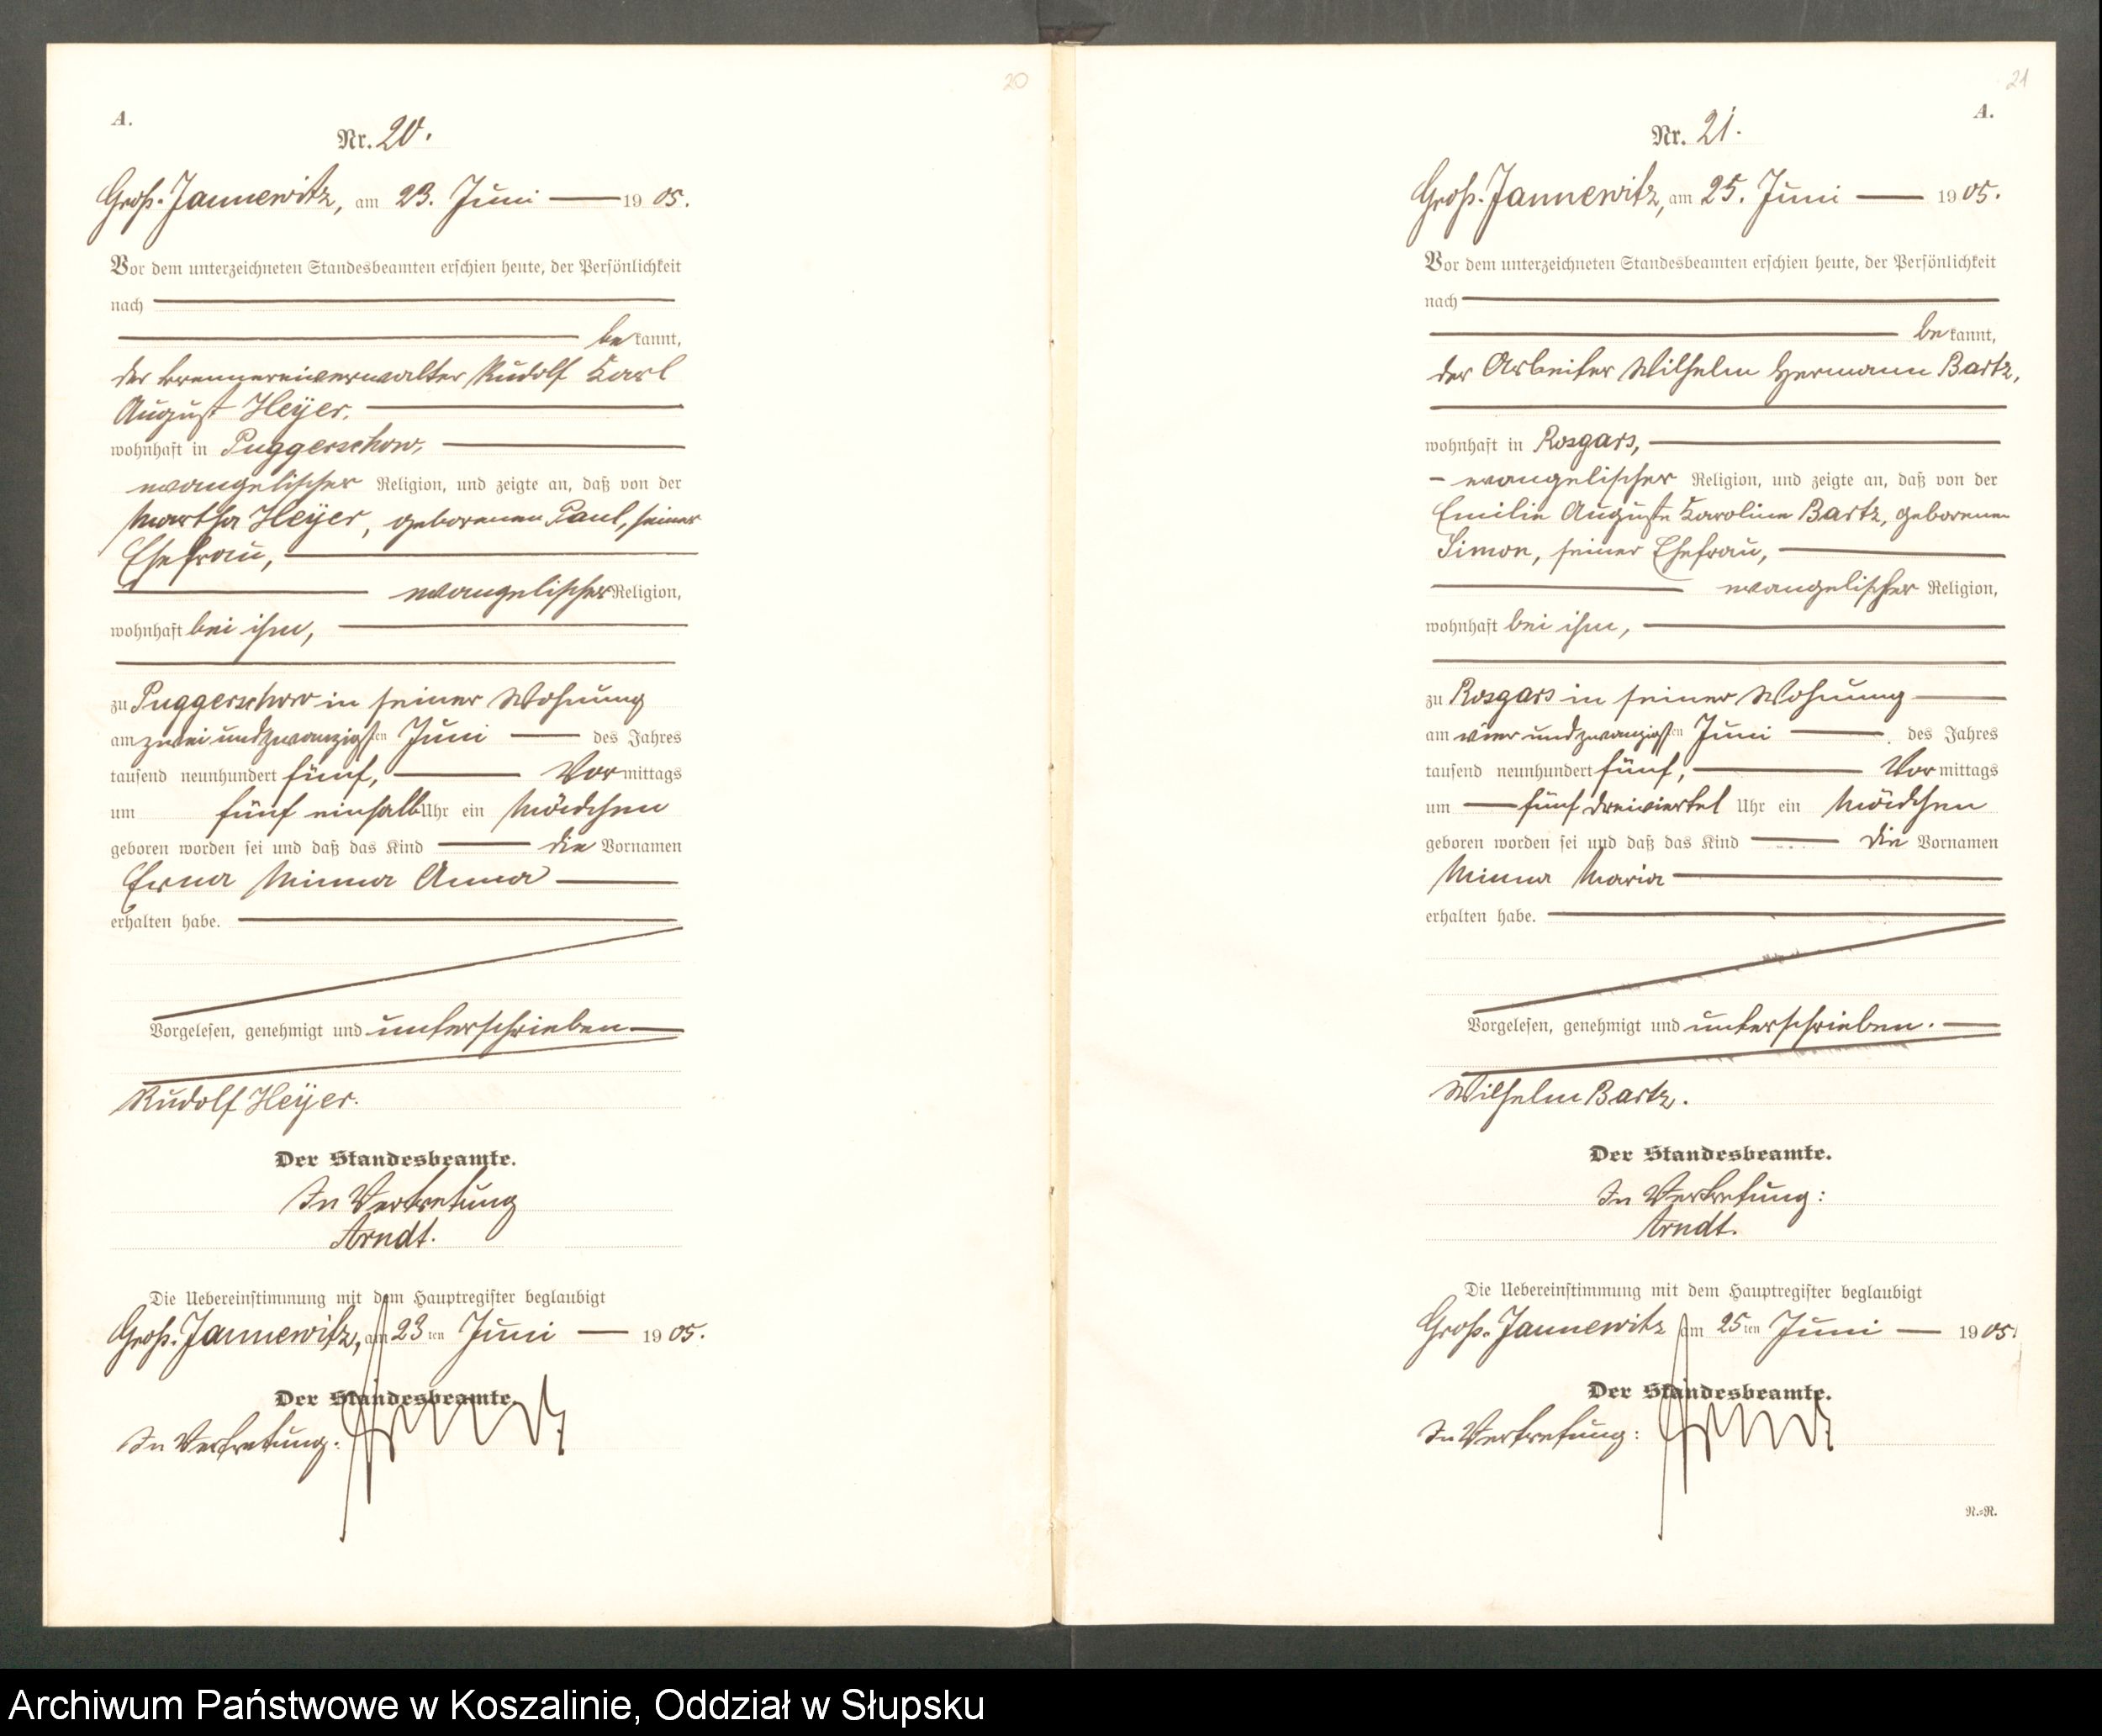 20
A.
Nr. 20.
Groß-Jannewitz, am 23. Juni 1905.
Vor dem unterzeichneten Standesbeamten erschien heute, der Persönlichkeit
nach
bekannt,
der Brennereiverwalter Rudolf Karl
August Heyer,
wohnhaft in Puggerschow,
evangelischer Religion, und zeigte an, daß von der
Martha Heyer, geborenen Paul, seiner
Ehefrau,
evangelischer Religion,
wohnhaft bei ihm,
zu Puggerschow in seiner Wohnung
am zwei und zwanzigsten Juni des Jahres
tausend neunhundert fünf, Vormittags
um fünf einhalb Uhr ein Mädchen
geboren worden sei und daß das Kind die Vornamen
Erna Minna Anna
erhalten habe.
Vorgelesen, genehmigt und unterschrieben
Rudolf Heyer.
Der Standesbeamte.
In Vertretung
Arndt.
Die Uebereinstimmung mit dem Hauptregister beglaubigt
Groß-Jannewitz, am 23ten Juni 1905.
Der Standesbeamte.
In Vertretung: Arndt
21
A.
Nr. 21.
Groß-Jannewitz, am 25. Juni 1905.
Vor dem unterzeichneten Standesbeamten erschien heute, der Persönlichkeit
nach
bekannt,
der Arbeiter Wilhelm Hermann Bartz,
wohnhaft in Rosgars,
evangelischer Religion, und zeigte an, daß von der
Emilie Auguste Karoline Bartz, geborenen
Simon, seiner Ehefrau,
evangelischer Religion,
wohnhaft bei ihm,
zu Rosgars in seiner Wohnung
am vier und zwanzigsten Juni des Jahres
tausend neunhundert fünf, Vormittags
um fünf dreiviertel Uhr ein Mädchen
geboren worden sei und daß das Kind die Vornamen
Minna Maria
erhalten habe.
Vorgelesen, genehmigt und unterschrieben.
Wilhelm Bartz.
Der Standesbeamte.
In Vertretung:
Arndt.
Die Uebereinstimmung mit dem Hauptregister beglaubigt
Groß-Jannewitz am 25ten Juni 1905.
Der Standesbeamte.
In Vertretung: Arndt
N.=R.
Archiwum Państwowe w Koszalinie, Oddział w Słupsku